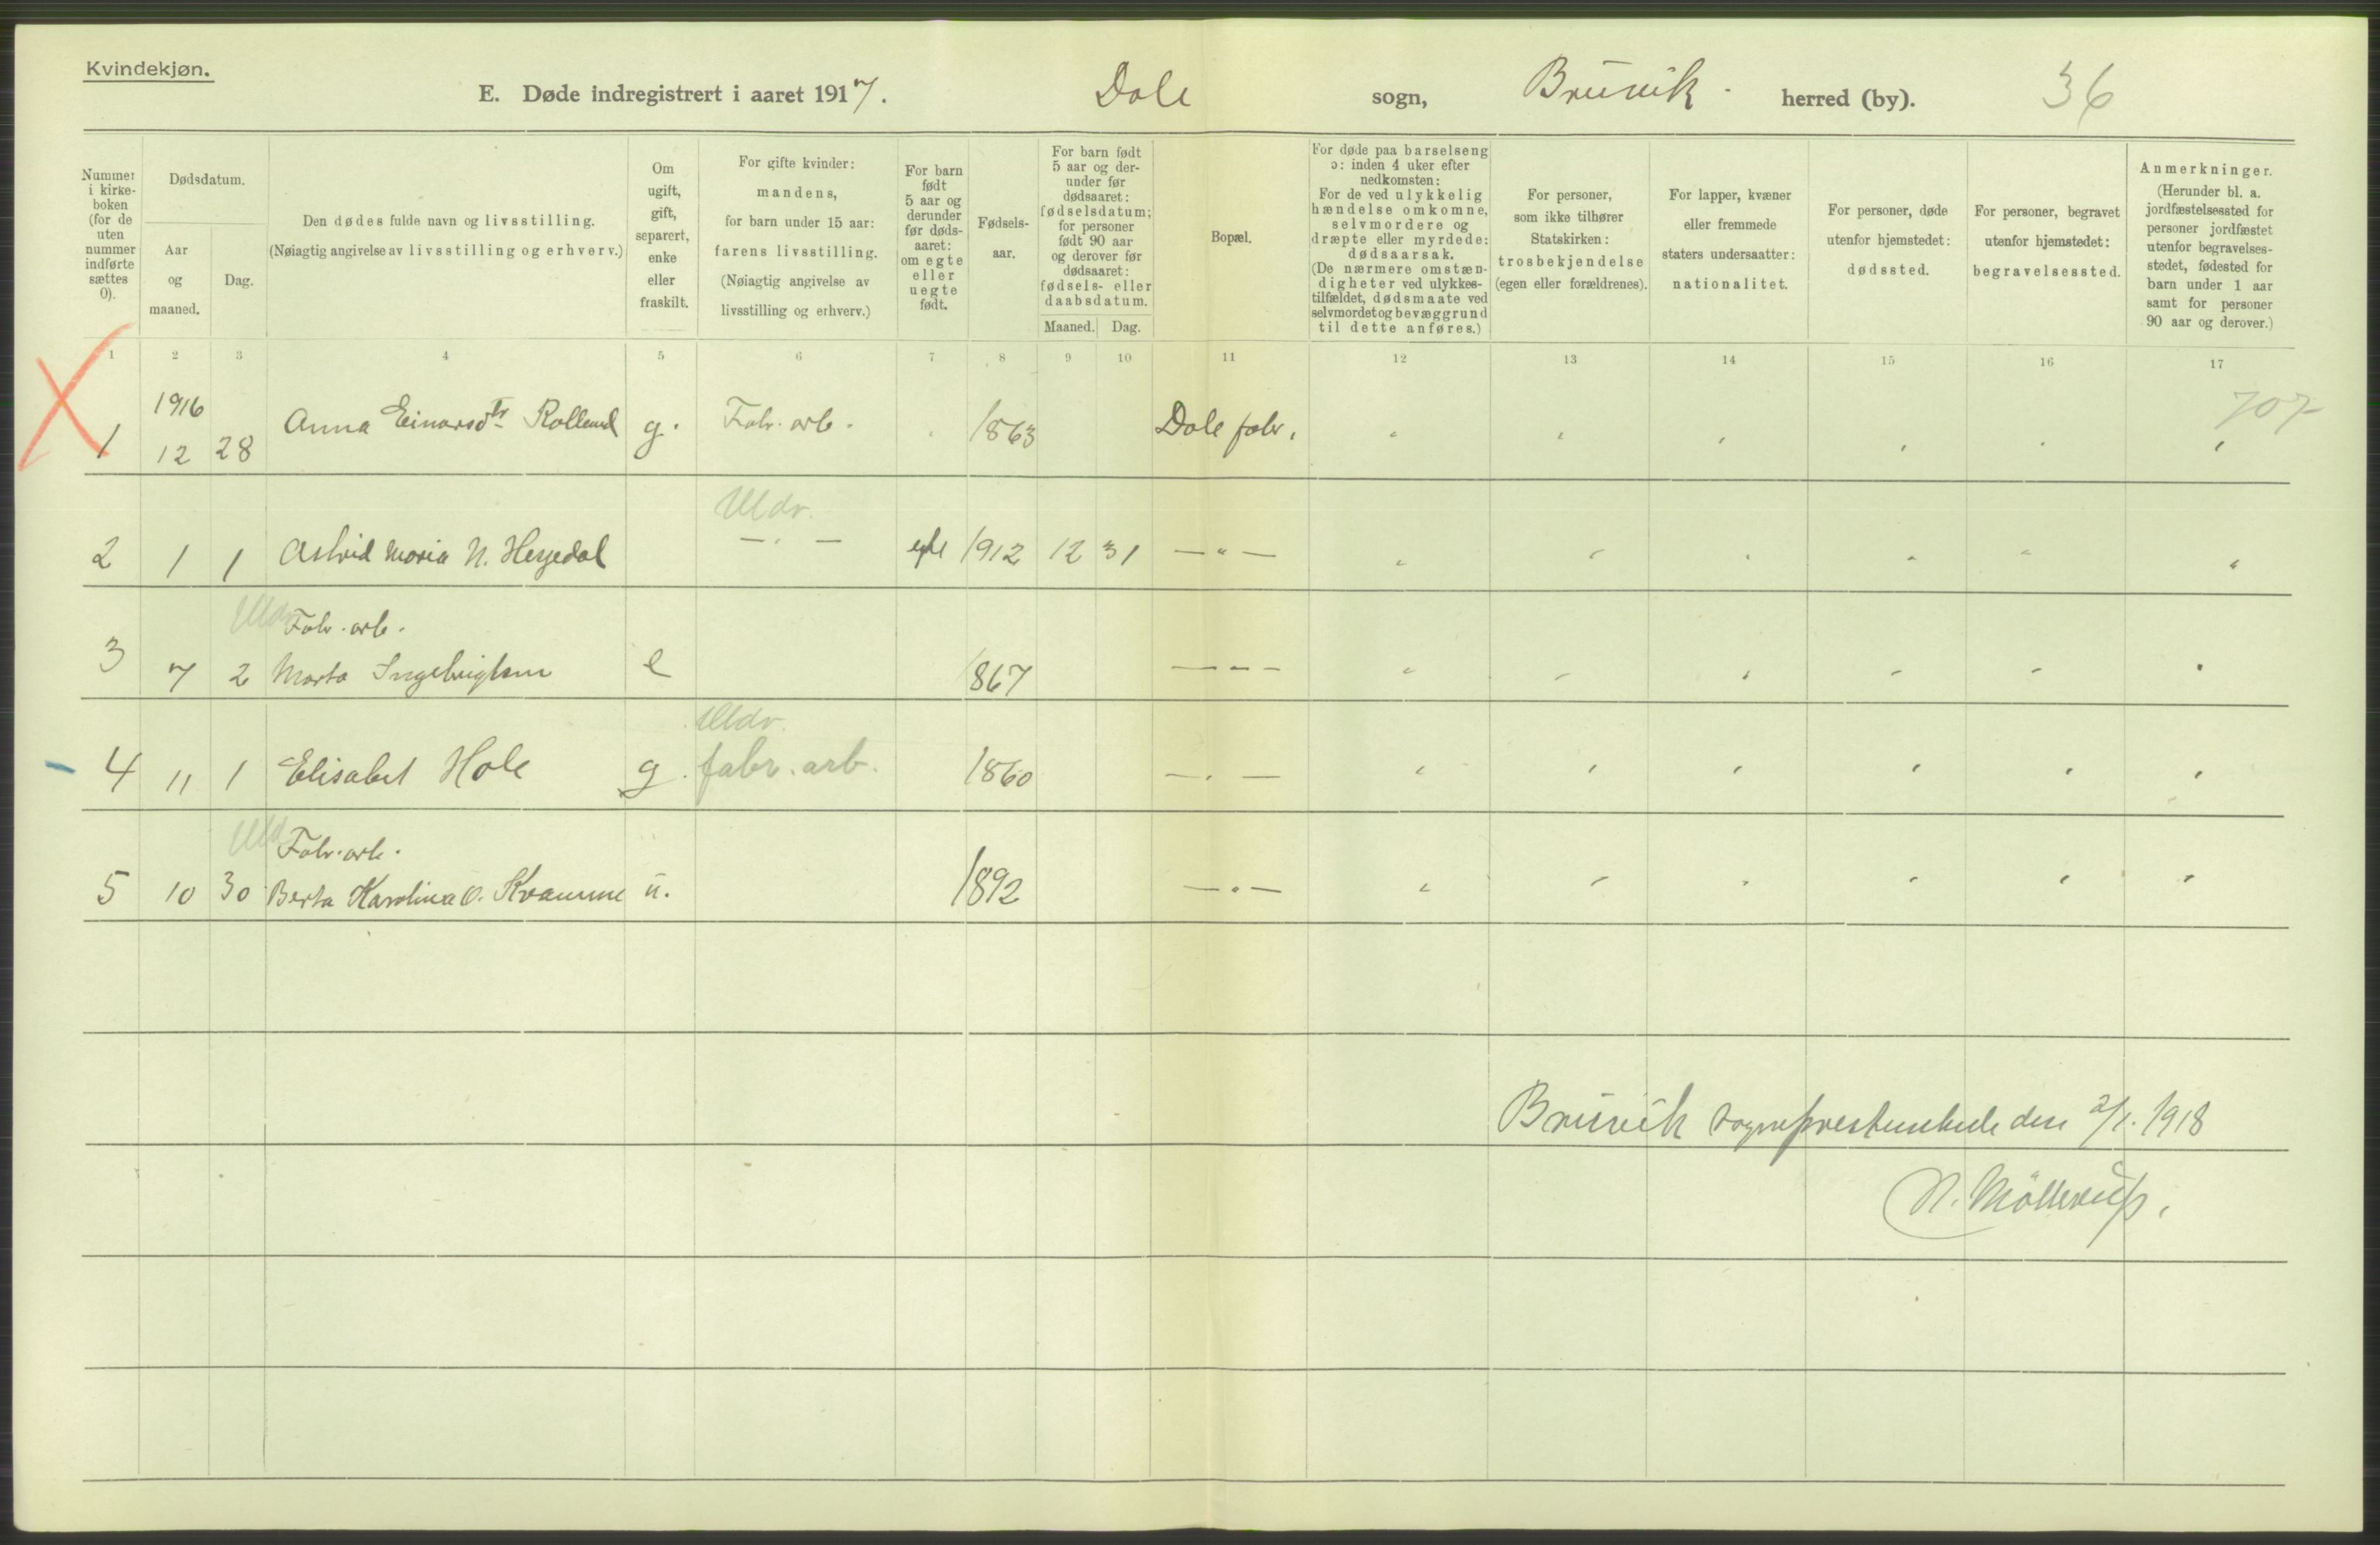 Kvindekjøn.
E. Døde indregistrert i aaret 1917. Dale sogn, Bruvik herred (by). 36
Nummer i kirkeboken (for de uten nummer indførte sættes 0).
Dødsdatum.
Aar og maaned.
Dag.
Den dødes fulde navn og livsstilling.
(Nøiagtig angivelse av livsstilling og erhverv.)
Om ugift, gift, separert, enke eller fraskilt.
For gifte kvinder: mandens, for barn under 15 aar: farens livsstilling.
(Nøiagtig angivelse av livsstilling og erhverv.)
For barn født 5 aar og derunder før dødsaaret: om egte eller uegte født.
Fødselsaar.
For barn født 5 aar og derunder før dødsaaret: fødselsdatum; for personer født 90 aar og derover før dødsaaret: fødsels- eller daabsdatum.
Maaned. Dag.
Bopæl.
For døde paa barselseng ɔ: inden 4 uker efter nedkomsten:
For de ved ulykkelig hændelse omkomne, selvmordere og dræpte eller myrdede: dødsaarsak.
(De nærmere omstændigheter ved ulykkestilfældet, dødsmaate ved selvmordet og bevæggrund til dette anføres.)
For personer, som ikke tilhører Statskirken: trosbekjendelse (egen eller forældrenes).
For lapper, kvæner eller fremmede staters undersaatter: nationalitet.
For personer, døde utenfor hjemstedet: dødssted.
For personer, begravet utenfor hjemstedet: begravelsessted.
Anmerkninger.
(Herunder bl. a. jordfæstelsessted for personer jordfæstet utenfor begravelsesstedet, fødested for barn under 1 aar samt for personer 90 aar og derover.)
1 2 3 4 5 6 7 8 9 10 11 12 13 14 15 16 17
707
1916
1 12 28 Anna Einarsdtr Rolland g. Fabr. arb. 1863 Dale fabr.
Uldv.
2 1 1 Astrid Maria N. Hesjedal — " — egte 1912 12 31 — " —
Uldv Fabr. arb.
3 7 2 Marta Ingebrigtsen e 1867 — " —
Uldv.
4 11 1 Elisabet Hole g. fabr. arb. 1860 — " —
Uld Fabr. arb.
5 10 30 Berta Karolina O. Kvamme u. 1892 — " —
Bruvik sogneprestembede den 2/1. 1918
N. Möllerup.